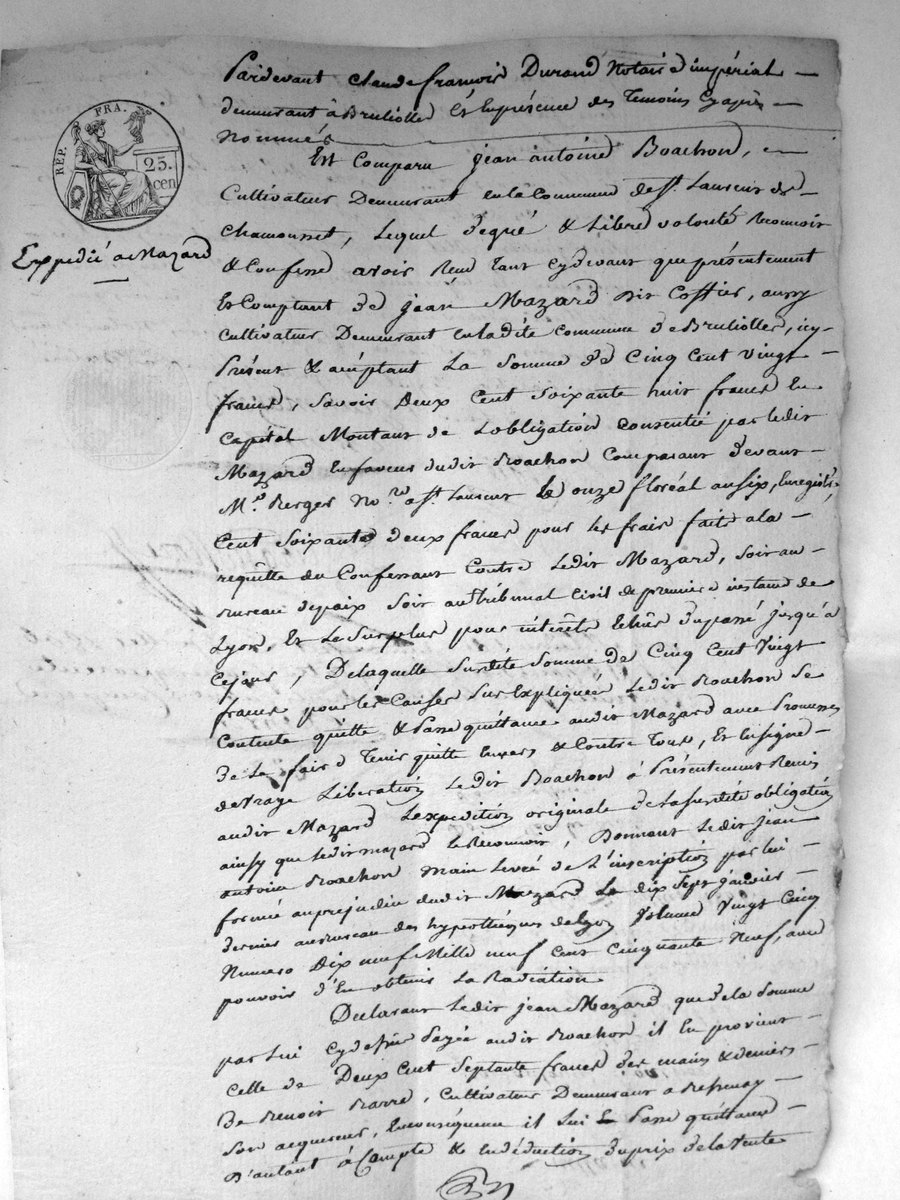 REP. FRA.
25.
cen
Expedié a Mazard
Pardevant Claude françois Durand Notaire impérial
demeurant à Brullolle Et En présence des Temoins Cy après
Nommés
Est Comparu jean antoine Boachon,
Cultivateur Demeurant en la Commune de St. Laurent de
Chamousset, Lequel de gré & Libere volonté Reconnoit
& Confesse avoir Reçu Tant cy devant que présentement
Et Comptant de jean Mazard dit Coffier, aussy
Cultivateur Demeurant en la dite Commune de Brullolle, icy
Présent & acéptant La Somme de Cinq Cent Vingt
francs, Savoir Deux Cent Soixante huit francs En
Capital Montant de Lobligation Consentie par ledit
Mazard En faveur dudit Boachon Comparant devant
Me. Berger Nore. a St. Laurent le onze floréal an six, Enregistré
Cent Soixante deux francs pour les frais faits a la
requête du Confessant Contre Ledit Mazard, soit au
Bureau de paix soit au tribunal Civil de premiere instance de
Lyon, Et Le Surplus pour intérêts Echus du passé jusqu'à
Ce jour, De laquelle Susdite Somme de Cinq Cent Vingt
francs pour les Causes Sus Expliquées Ledit Boachon Se
Contente quitte & Passe quittance audit Mazard avec Promesse
de Le faire Tenir quitte Envers & Contre Tous, Et En signe
de vraye Libération Ledit Boachon à Présentement Remis
audit Mazard Lexpedition originale de La susdite obligation
ainsy que ledit mazard Le Reconnoit, Donnant Ledit Jean
antoine Boachon main Levée de L'inscription par lui
formée au préjudice dudit Mazard Le dix Sept janvier
dernier au Bureau des hypothéques de Lyon Volume Vingt Cinq
Numero Dix neuf Mille neuf Cent Cinquante Neuf, avec
pouvoir d'En obtenir La Radiation.
Declarant Ledit jean Mazard que de la Somme
par Lui Cy dessus Payée audit Boachon il En provient
Celle de Deux Cent Septante francs des mains & deniers
de Benoit Barre, Cultivateur Demeurant a
Son acquereur, En conséquence il Lui En Passe quittance
D'autant à Compte & En déduction du prix de la Vente